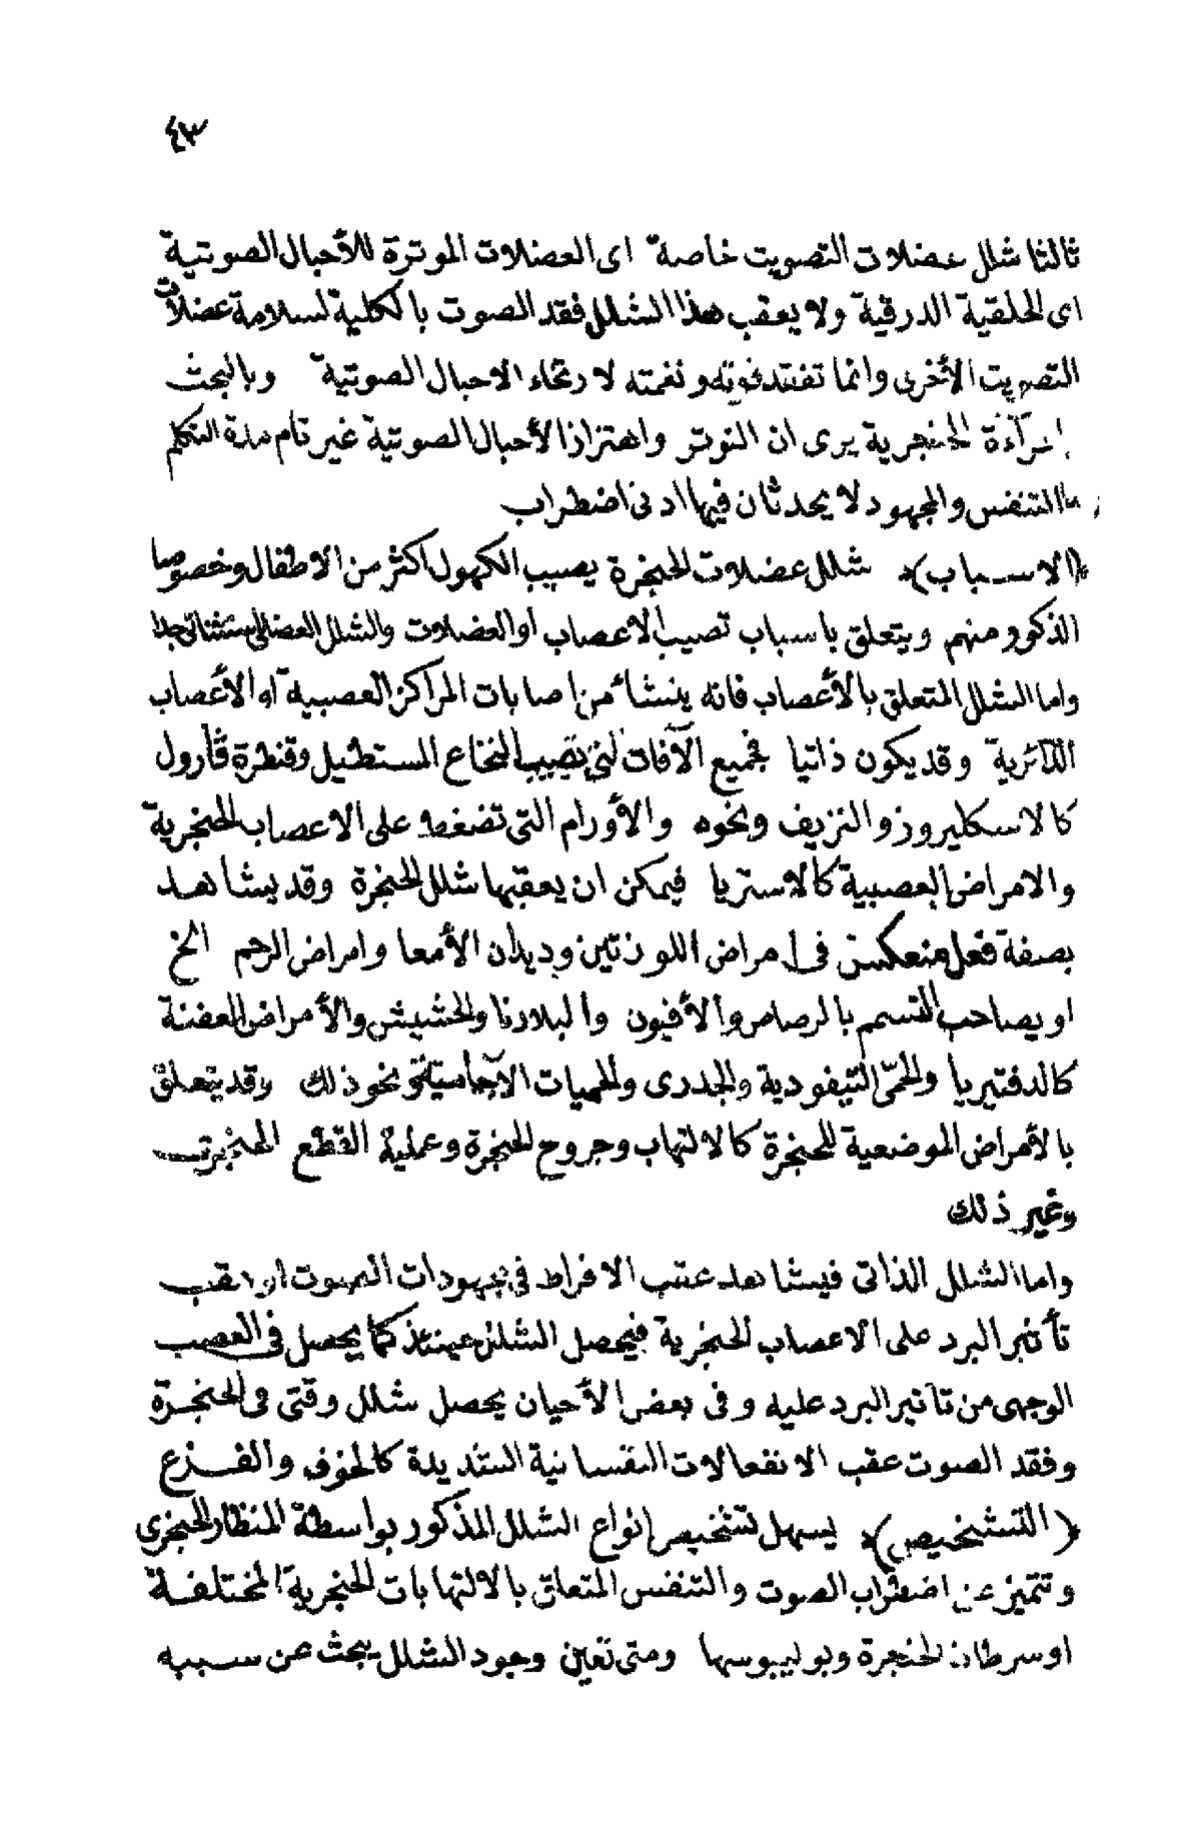 ٤٣
ثالثا شلل عضلات التصويت خاصة اى العضلات الموترة للأحبال الصوتية
اى الحلقية الدرقية ولا يعقب هذا الشلل فقد الصوت بالكلية لسلامة عضلات
التصويت الأخرى وانما تفتقد قوته ونغمته لارتخاء الاحبال الصوتية وبالبحث
بالمرآءة الحنجرية يرى ان التوتر واهتزاز الأحبال الصوتية غير تام مدة التكلم
اما التنفس والمجهود لا يحدثان فيها ادنى اضطراب
﴿الاسباب﴾ شلل عضلات الحنجرة يصيب الكهول اكثر من الاطفال وخصوصا
الذكور منهم ويتعلق باسباب تصيب الاعصاب او العضلات والشلل العضلى استثنائى جدا
واما الشلل المتعلق بالأعصاب فانه ينشاء من اصابات المراكز العصبية او الأعصاب
الدآئرية وقد يكون ذاتيا فجميع الآفات التى تصيب النخاع المستطيل وقنطرة ڤارول
كالاسكليروز والنزيف ونحوه والأورام التى تضغط على الاعصاب الحنجرية
والامراض العصبية كالاستريا فيمكن ان يعقبها شلل الحنجرة وقد يشاهد
بصفة فعل منعكس فى امراض اللوزتين وديدان الأمعا وامراض الرحم الخ
او يصاحب التسمم بالرصاص والأفيون والبلادنا والحشيش والأمراض العفنة
كالدفتيريا والحمّى التيفودية والجدرى والحميات الآجامية ونحو ذلك وقد يتعلق
بالأمراض الموضعية للحنجرة كالالتهاب وجروح الحنجرة وعملية القطع الحنجرى
وغير ذلك
واما الشلل الذاتى فيشاهد عقب الافراط فى مجهودات الصوت او عقب
تأثير البرد على الاعصاب الحنجرية فيحصل الشلل حينئذ كما يحصل فى العصب
الوجهى من تاثير البرد عليه وفى بعض الأحيان يحصل شلل وقتى فى الحنجرة
وفقد الصوت عقب الانفعالات النفسانية الشديدة كالخوف والفزع
﴿التشخيص﴾ يسهل تشخيص انواع الشلل المذكور بواسطة المنظار الحنجرى
وتتميز عن اضطراب الصوت والتنفس المتعلق بالالتهابات الحنجرية المختلفة
او سرطان الحنجرة وبوليبوسها ومتى تعين وجود الشلل يبحث عن سببه